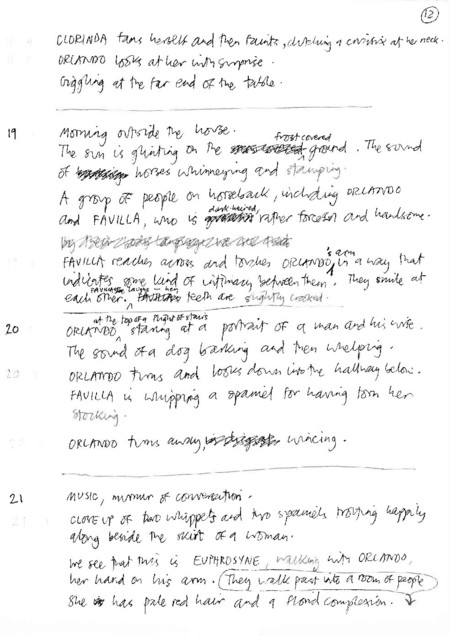 12
CLORINDA fans herself and then faints, clutching a crucifix at her neck.
ORLANDO looks at her with surprise.
Giggling at the far end of the table.
19
Morning outside the house.
frost covered
The sun is glinting on the ground. The sound
of horses whinneying and stamping.
A group of people on horseback, including ORLANDO
dark haired,
and FAVILLA, who is rather forceful and handsome.
FAVILLA reaches across and touches ORLANDO's arm in a way that
indicates some kind of intimacy between them. They smile at
each other. FAVILLA laughs - her teeth are slightly crooked.
at the top of a flight of stairs
20
ORLANDO staring at a portrait of a man and his wife.
The sound of a dog barking and then whelping.
ORLANDO turns and looks down into the hallway below.
FAVILLA is whipping a spaniel for having torn her
stocking.
ORLANDO turns away, wincing.
21
MUSIC, murmur of conversation.
CLOSE UP of two whippets and two spaniels trotting happily
along beside the skirt of a woman.
We see that this is EUPHROSYNE, walking with ORLANDO,
her hand on his arm. They walk past into a room of people
She has pale red hair and a florid complexion.